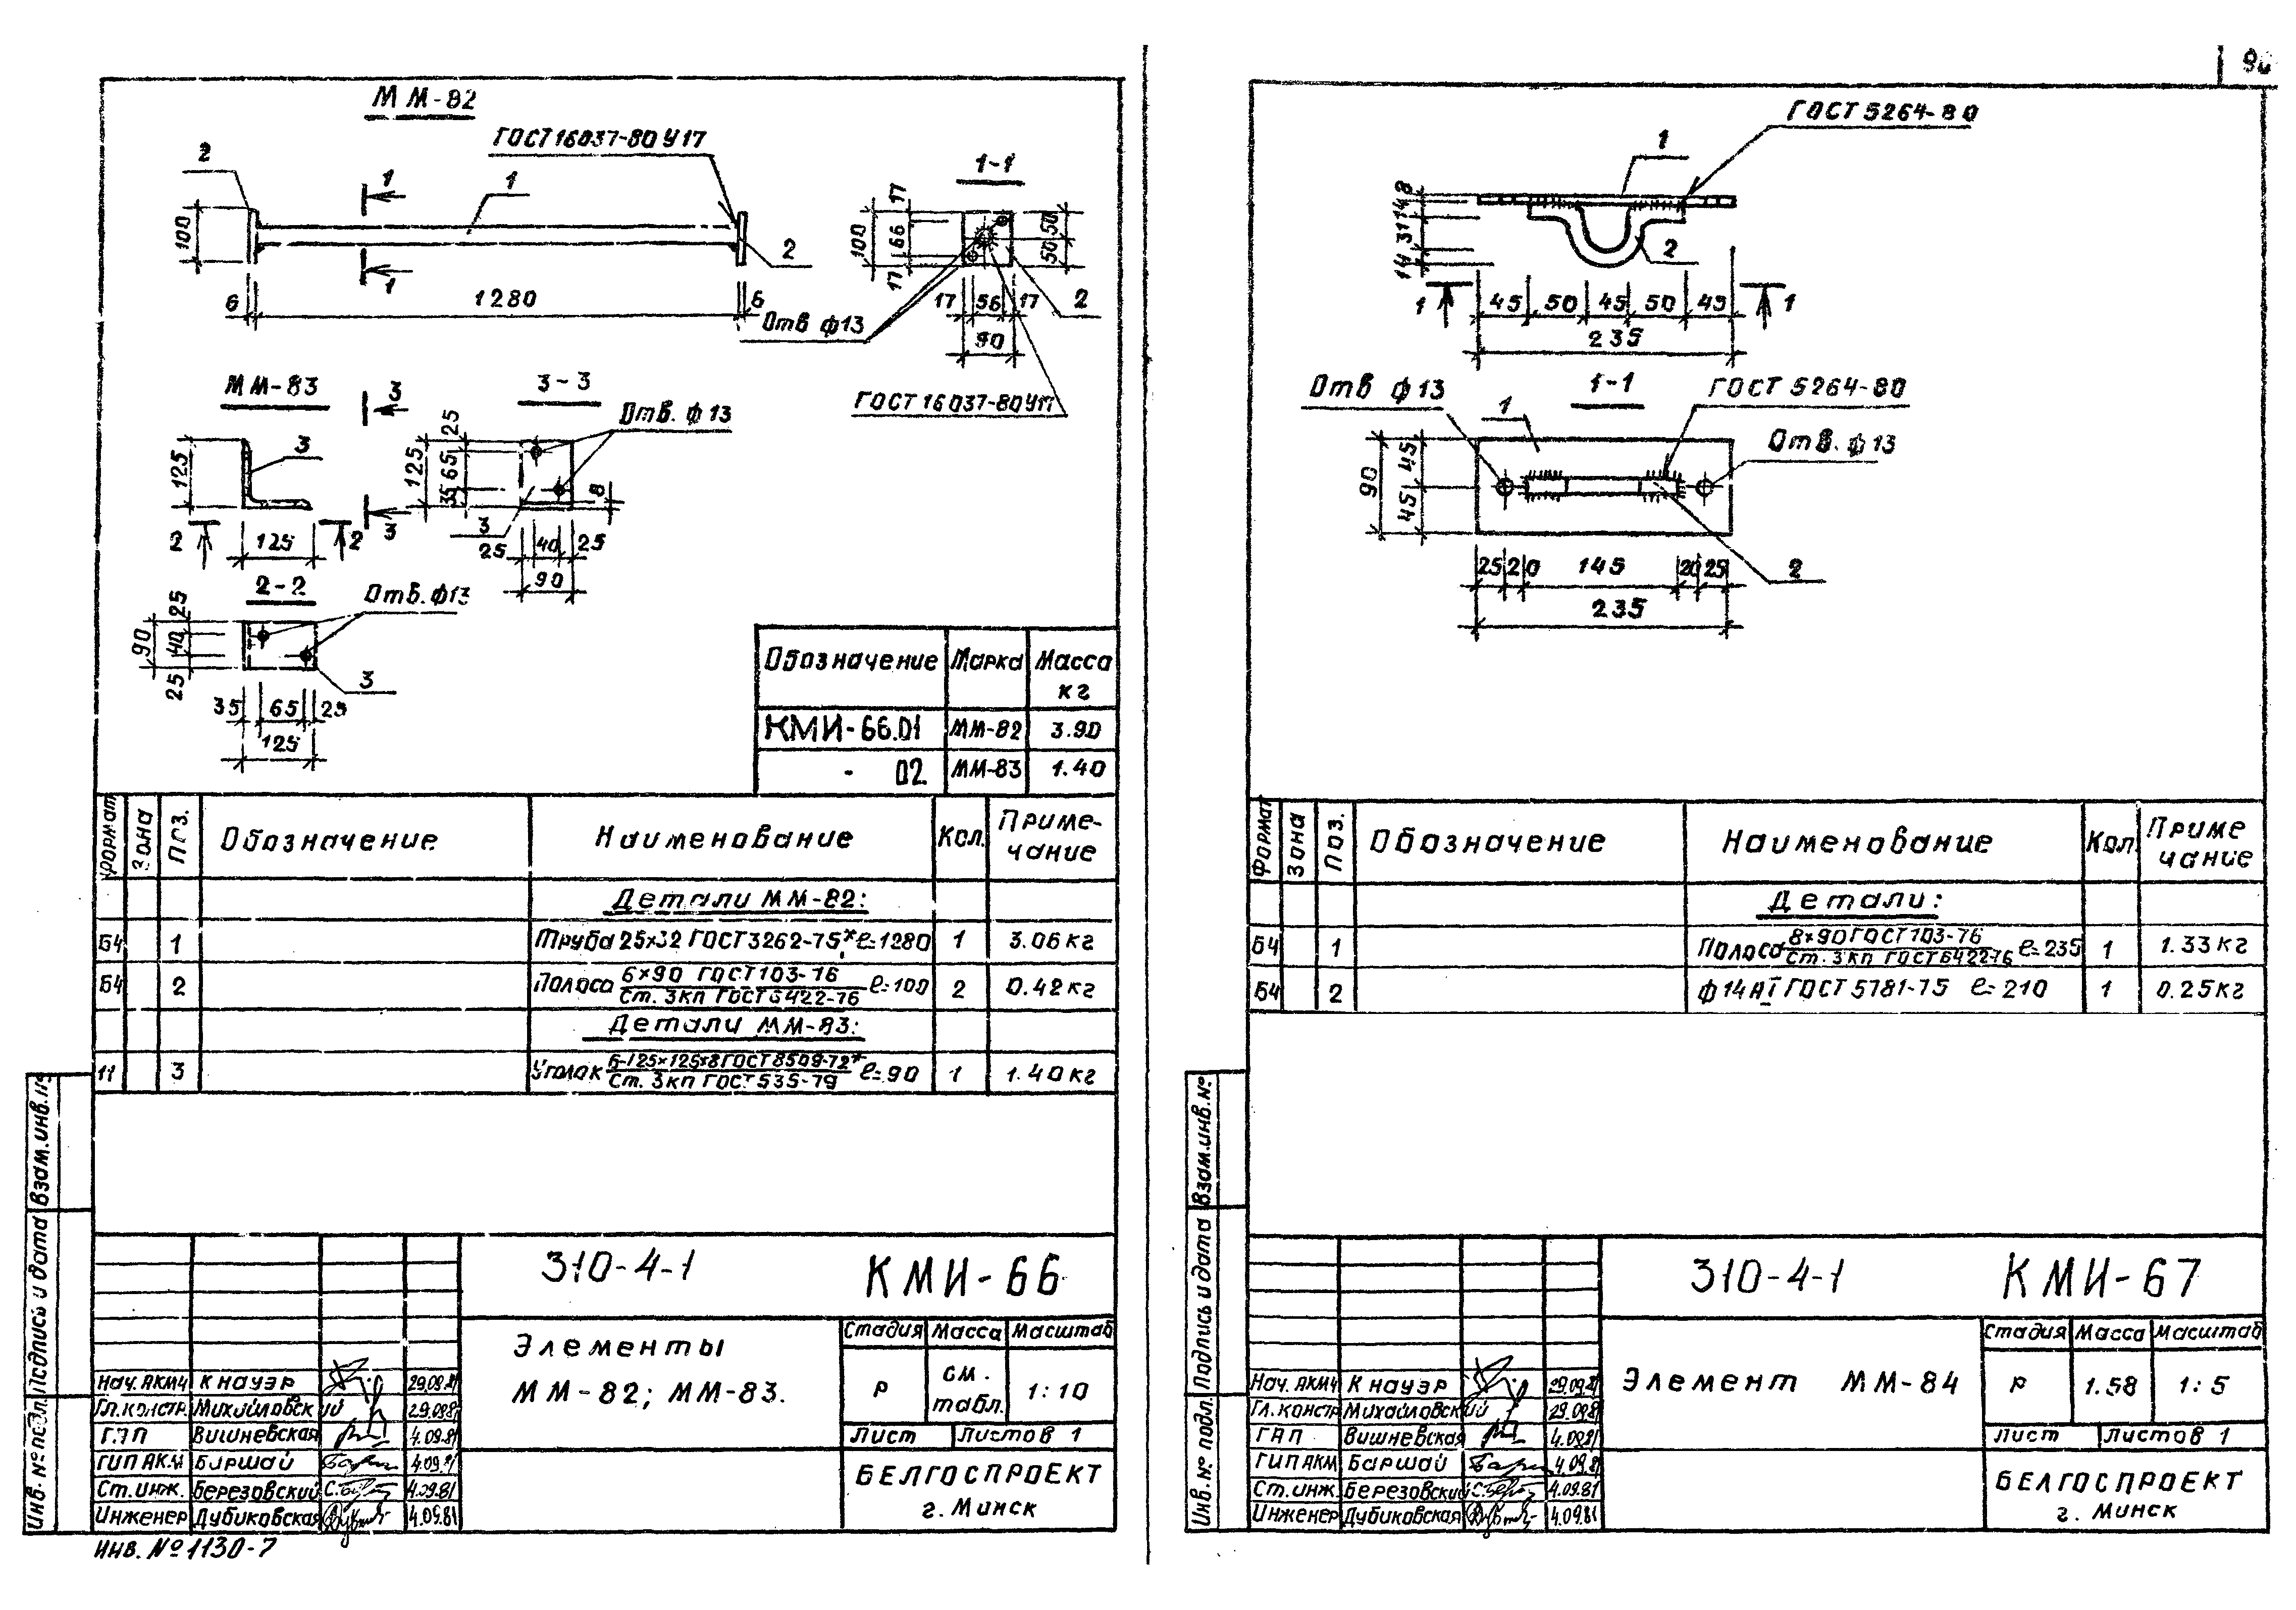 ММ-82
ГОСТ 16037-80 У17
2
1
1
1
2
100
6
1280
6
1-1
17
66
17
100
50
50
17
56
17
90
2
Отв ф13
ГОСТ 16037-80У17
ММ-83
3
3
3
125
125
2
2
3-3
Отв. ф 13
25
65
35
125
8
3
25
40
25
90
2-2
Отв. ф13
25
40
25
90
3
35
65
25
125
Обозначение Марка Масса кг
КМИ-66.01 ММ-82 3.90
- 02 ММ-83 1.40
Формат Зона Поз. Обозначение Наименование Кол. Приме-
чание
Детали ММ-82:
Б4 1 Труба 25×32 ГОСТ 3262-75* ℓ=1280 1 3.06 кг
Б4 2 Полоса 6×90 ГОСТ 103-76 ℓ=100 2 0.42 кг
Ст. 3кп ГОСТ 6422-76
Детали ММ-83:
11 3 Уголок Б-125×125×8 ГОСТ 8509-72* ℓ=90 1 1.40 кг
Ст. 3кп ГОСТ 535-79
Взам.инв.№
Подпись и дата
Инв. № подл.
310-4-1 КМИ-66
Элементы
ММ-82; ММ-83.
Стадия Масса Масштаб
Р см. табл. 1:10
Лист Листов 1
БЕЛГОСПРОЕКТ
г. Минск
Нач. АКМЧ Кнауэр 29.09.81
Гл.констр. Михайловский 29.09.81
ГАП Вишневская 4.09.81
ГИП АКМ Баршай 4.09.81
Ст. инж. Березовский 4.09.81
Инженер Дубиковская 4.09.81
Инв. № 1130-7
ГОСТ 5264-80
1
8
14
31
14
2
1
1
45
50
45
50
45
235
1-1
Отв ф13
ГОСТ 5264-80
1
Отв. ф13
90
45
45
25
20
145
20
25
2
235
Формат Зона Поз. Обозначение Наименование Кол Приме
чание
Детали:
Б4 1 Полоса 8×90 ГОСТ 103-76 ℓ=235 1 1.33 кг
Ст. 3кп ГОСТ 6422-76
Б4 2 ф 14АI ГОСТ 5781-75 ℓ=210 1 0.25 кг
Взам.инв.№
Подпись и дата
Инв. № подл.
310-4-1 КМИ-67
Элемент ММ-84
Стадия Масса Масштаб
Р 1.58 1:5
Лист Листов 1
БЕЛГОСПРОЕКТ
г. Минск
Нач. АКМЧ Кнауэр 29.09.81
Гл. констр Михайловский 29.09.81
ГАП Вишневская 4.09.81
ГИП АКМ Баршай 4.09.81
Ст. инж. Березовский 4.09.81
Инженер Дубиковская 4.09.81